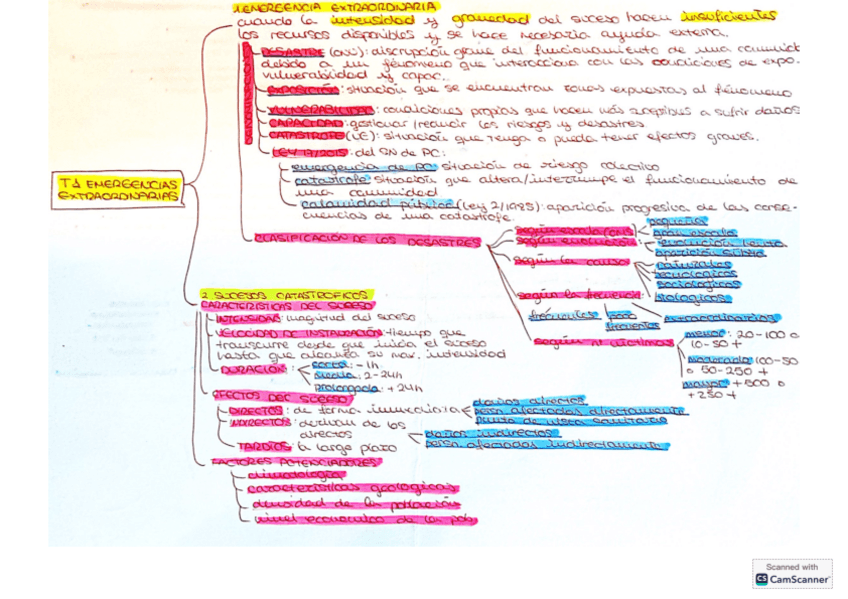 1. EMERGENCIA EXTRAORDINARIA
cuando la intensidad y gravedad del suceso hacen insuficientes
los recursos disponibles y se hace necesaria ayuda externa.
DESASTRE (ONU): disrupción grave del funcionamiento de una comunid
debido a un fenómeno que interacciona con las condiciones de expo.
vulnerabilidad y capac.
EXPOSICIÓN: situación que se encuentran zonas expuestas al fenómeno
VULNERABILIDAD: condiciones propias que hacen más suceptibles a sufrir daños
CAPACIDAD: gestionar/reducir los riesgos y desastres
CATASTROFE (UE): situación que tenga o pueda tener efectos graves.
LEY 17/2015: del SN de PC:
emergencia de PC: situación de riesgo colectivo
catastrofe: situación que altera/interrumpe el funcionamiento de
una comunidad
calamidad pública (Ley 2/1985): aparición progresiva de las conse-
cuencias de una catastrofe.
T1 EMERGENCIAS
EXTRAORDINARIAS
CLASIFICACIÓN DE LOS DESASTRES
según escala (ONU)
pequeña
gran escala
según evolución
evolución lenta
aparición súbita
según la causa
naturales
tecnologicos
sociologicos
biologicos
según la frecuencia
frecuentes
poco
frecuentes
extraordinarios
según nº victimas
menor: 20-100 o
10-50 +
moderado: 100-50
o 50-250 +
mayor: +500 o
+250 +
2 SUCESOS CATASTROFICOS
CARACTERISTICAS DEL SUCESO
INTENSIDAD: magnitud del suceso
VELOCIDAD DE INSTAURACIÓN: tiempo que
transcurre desde que inicia el suceso
hasta que alcanza su max. intensidad
DURACIÓN:
corta: -1h
media: 2-24h
prolongada: +24h
EFECTOS DEL SUCESO
DIRECTOS: de forma inmediata
daños directos
pers. afectadas directamente
punto de vista sanitario
INDIRECTOS: derivan de los
directos
daños indirectos
pers. afectadas indirectamente
TARDÍOS: a largo plazo
FACTORES POTENCIADORES
climatología
características geologicas
densidad de la población
nivel economico de la pob.
Scanned with
CS CamScanner